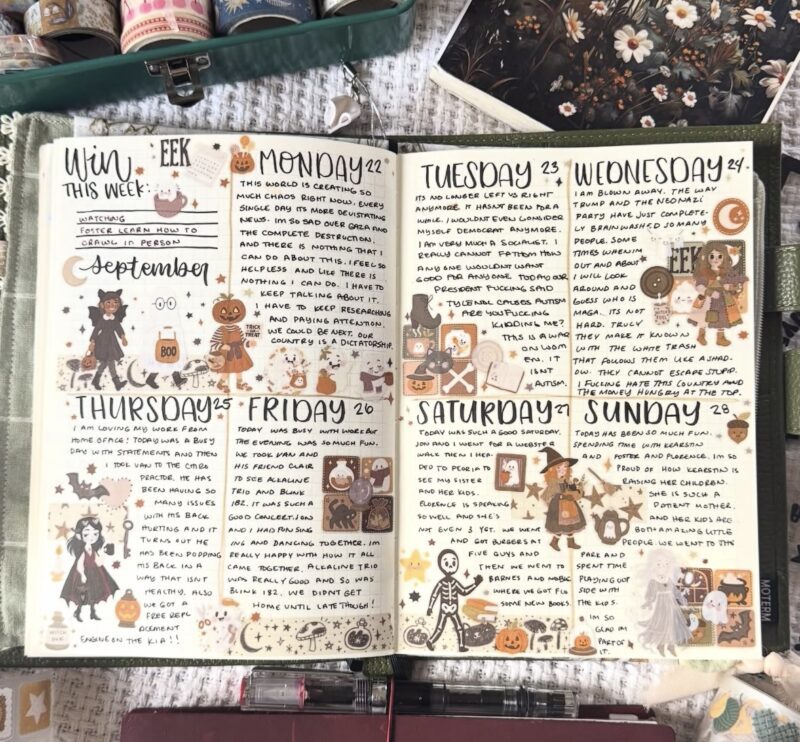 Win
THIS WEEK:
WATCHING
FOSTER LEARN HOW TO
CRAWL IN PERSON
September
EEK
BOO
TRICK
OR
TREAT
MONDAY 22
THIS WORLD IS CREATING SO
MUCH CHAOS RIGHT NOW. EVERY
SINGLE DAY ITS MORE DEVISTATING
NEWS. IM SO SAD OVER GAZA AND
THE COMPLETE DESTRUCTION,
AND THERE IS NOTHING THAT I
CAN DO ABOUT THIS. I FEEL SO
HELPLESS AND LIKE THERE IS
NOTHING I CAN DO. I HAVE TO
KEEP TALKING ABOUT IT.
I HAVE TO KEEP RESEARCHING
AND PAYING ATTENTION.
WE COULD BE NEXT. OUR
COUNTRY IS A DICTATORSHIP.
TUESDAY 23
ITS NO LONGER LEFT VS RIGHT
ANYMORE. IT HASNT BEEN FOR A
WHILE. I WOULDNT EVEN CONSIDER
MYSELF DEMOCRAT ANYMORE.
I AM VERY MUCH A SOCIALIST. I
REALLY CANNOT FATHOM HOW
ANY ONE WOULDNT WANT
GOOD FOR ANYONE. TODAY OUR
PRESIDENT FUCKING SAID
TYLENOL CAUSES AUTISM
ARE YOU FUCKING
KIDDING ME?
THIS IS A WAR
ON WOM
EN. IT
ISNT
AUTISM.
WEDNESDAY 24
I AM BLOWN AWAY. THE WAY
TRUMP AND THE NEONAZI
PARTY HAVE JUST COMPLETE-
LY BRAINWASHED SO MANY
PEOPLE. SOME
TIMES WHEN IM
OUT AND ABOUT
I WILL LOOK
AROUND AND
GUESS WHO IS
MAGA. ITS NOT
HARD. TRULY
THEY MAKE IT KNOWN
WITH THE WHITE TRASH
THAT FOLLOWS THEM LIKE A SHAD-
OW. THEY CANNOT ESCAPE STUPID.
I FUCKING HATE THIS COUNTRY AND
THE MONEY HUNGRY AT THE TOP.
EEK
THURSDAY 25
I AM LOVING MY WORK FROM
HOME OFFICE! TODAY WAS A BUSY
DAY WITH STATEMENTS AND THEN
I TOOK VAN TO THE CHIRO
PRACTOR. HE HAS
BEEN HAVING SO
MANY ISSUES
WITH HIS BACK
HURTING AND IT
TURNS OUT HE
HAS BEEN POPPING
HIS BACK IN A
WAY THAT ISNT
HEALTHY. ALSO
WE GOT A
FREE REPL
ACEMENT
ENGINE ON THE KIA!!
WITCH
FRIDAY 26
TODAY WAS BUSY WITH WORK BUT
THE EVENING WAS SO MUCH FUN.
WE TOOK VAN AND
HIS FRIEND CLAIR
TO SEE ALKALINE
TRIO AND BLINK
182. IT WAS SUCH A
GOOD CONCERT. JON
AND I HAD FUN SING
ING AND DANCING TOGETHER. IM
REALLY HAPPY WITH HOW IT ALL
CAME TOGETHER. ALKALINE TRIO
WAS REALLY GOOD AND SO WAS
BLINK 182. WE DIDNT GET
HOME UNTIL LATE THOUGH!
SATURDAY 27
TODAY WAS SUCH A GOOD SATURDAY.
JON AND I WENT FOR A WEBSTER
WALK THEN I HEA-
DED TO PEORIA TO
SEE MY SISTER
AND HER KIDS.
FLORENCE IS SPEAKING
SO WELL AND SHE'S
NOT EVEN 3 YET. WE WENT
AND GOT BURGERS AT
FIVE GUYS AND
THEN WE WENT TO
BARNES AND NOBLE
WHERE WE GOT FLO
SOME NEW BOOKS.
SUNDAY 28
TODAY HAS BEEN SO MUCH FUN.
SPENDING TIME WITH KEARSTIN
AND FOSTER AND FLORENCE. IM SO
PROUD OF HOW KEARSTIN IS
RAISING HER CHILDREN.
SHE IS SUCH A
PATIENT MOTHER.
AND HER KIDS ARE
BOTH AMAZING LITTLE
PEOPLE. WE WENT TO THE
PARK AND
SPENT TIME
PLAYING OUT
SIDE WITH
THE KIDS.
IM SO
GLAD IM
PART OF
IT.
MOTERM